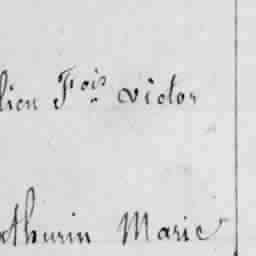 lien Fois victor
athurin Marie